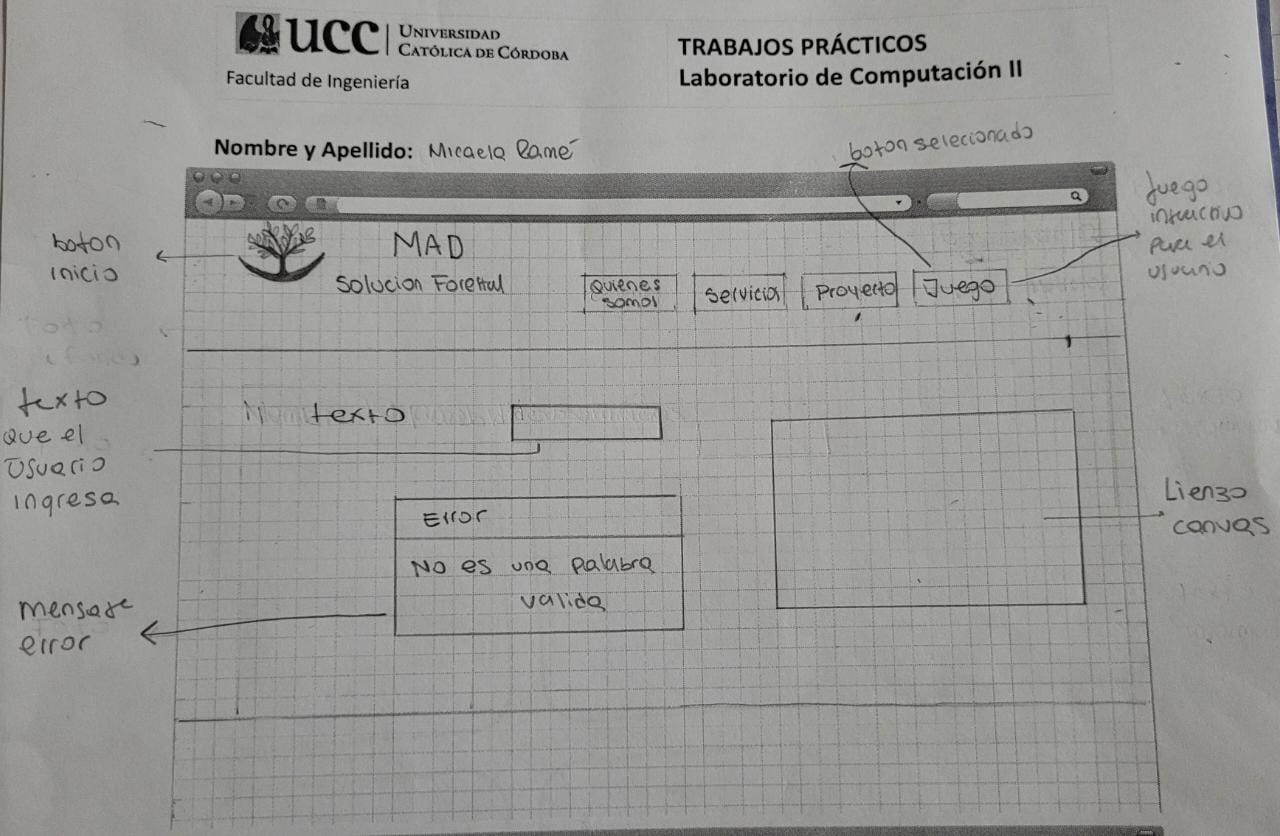 UCC
UNIVERSIDAD
CATÓLICA DE CÓRDOBA
Facultad de Ingeniería
TRABAJOS PRÁCTICOS
Laboratorio de Computación II
Nombre y Apellido: Micaela Ramé
boton selecionado
Juego
para el
usuario
boton
inicio
MAD
Solucion Forestal
Quienes
somos
Servicios
Proyecto
Juego
texto
que el
Usuario
ingresa
texto
Error
No es una palabra
valida
Lienzo
canvas
mensaje
error